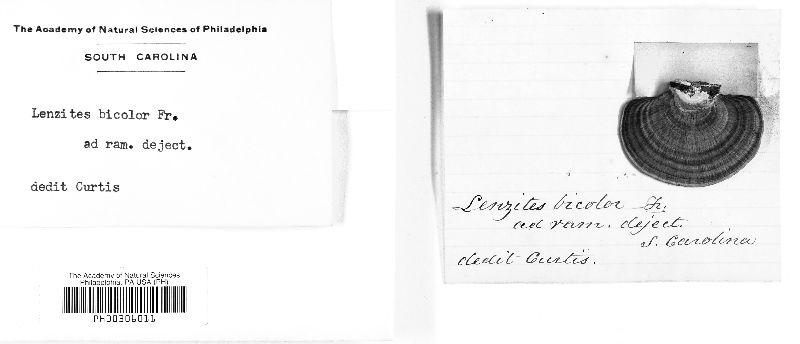 The Academy of Natural Sciences of Philadelphia
SOUTH CAROLINA
Lenzites bicolor Fr.
ad ram. deject.
dedit Curtis
The Academy of Natural Sciences
Philadelphia, PA USA (PH)
PH00306011
Lenzites bicolor Fr.
ad ram. deject.
S. Carolina
dedit Curtis.